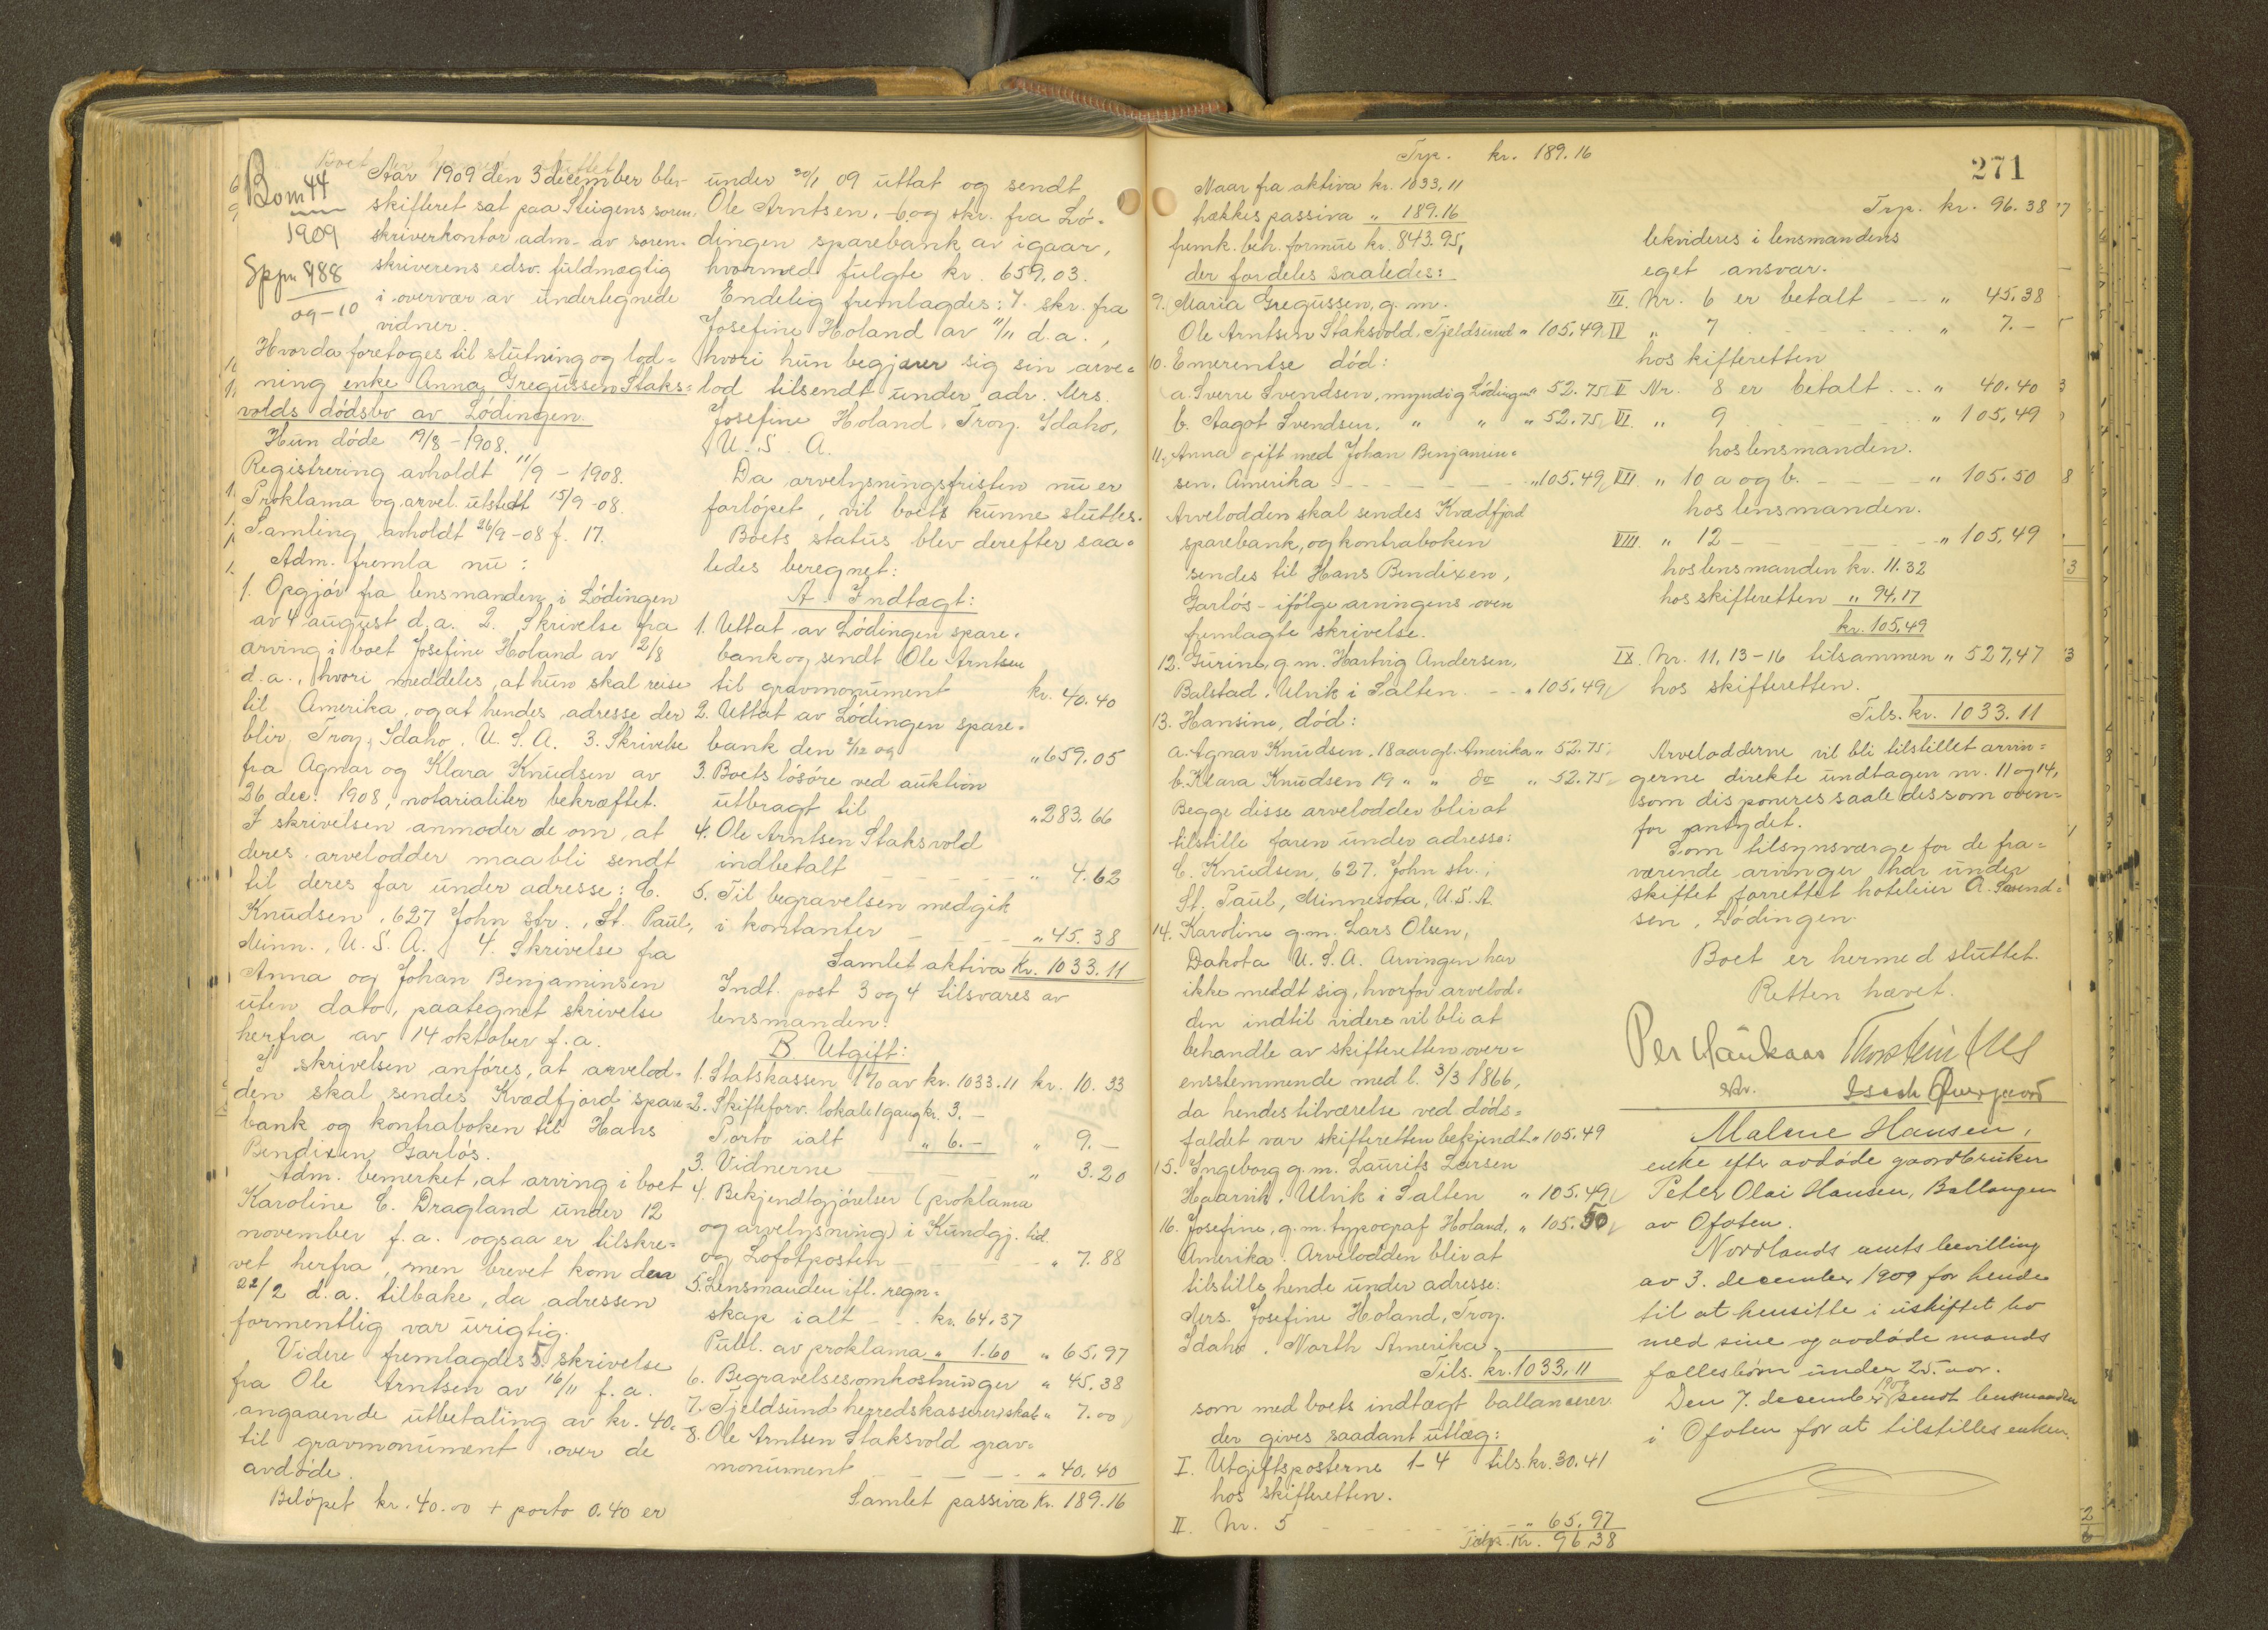 Bom 44
1909
Sppr. 888
09-10
Boet er hermed sluttet
Aar 1909 den 3 december blev
skifteret sat paa Steigens soren-
skriverkontor adm. av soren-
skriverens edsv. fuldmægtig
i overvær av underlegnede
vidner.
Hvorda foretoges til slutning og lod-
ning enke Anna Gregussen Staks-
volds dødsbo av Lødingen.
Hun døde 19/8 - 1908.
Registrering avholdt 11/9 - 1908.
Proklama og arvel. utstedt 15/9 -08.
Samling avholdt 26/9 -08 f. 17.
Adm. fremla nu:
1. Opgjør fra lensmanden i Lødingen
av 4 august d.a. 2. Skrivelse fra
arving i boet Josefine Holand av 2/8
d.a., hvori meddeles, at hun skal reise
til Amerika, og at hendes adresse der
blir Troy, Idaho, U.S.A. 3. Skrivelse
fra Agnar og Klara Knudsen av
26 dec. 1908, notarialiter bekræftet.
I skrivelsen anmoder de om, at
deres arvelodder maa bli sendt
til deres far under adresse: C.
Knudsen, 627 John str., St. Paul,
Minn., U.S.A. 4. Skrivelse fra
Anna og Johan Benjaminsen
uten dato, paategnet skrivelse
herfra av 14 oktober f.a.
I skrivelsen anføres, at arvelod-
den skal sendes Kvædfjord spare-
bank og kontraboken til Hans
Bendixen Garløs.
Adm. bemerket, at arving i boet
Karoline C. Dragland under 12
november f.a. ogsaa er tilskre-
vet herfra, men brevet kom den
22/2 d.a. tilbake, da adressen
formentlig var urigtig.
Videre fremlagdes 5. skrivelse
fra Ole Arntsen av 16/11 f.a.
angaaende utbetaling av kr. 40.-
til gravmonument over de
avdøde.
Beløpet kr. 40.00 + porto 0.40 er
under 20/1 09 uttat og sendt
Ole Arntsen. 6. og skr. fra Lø-
dingen sparebank av igaar,
hvormed fulgte kr. 659.03.
Endelig fremlagdes: 7. skr. fra
Josefine Holand av 11/11 d.a.,
hvori hun begjærer sig sin arve-
lod tilsendt under adr. Mrs.
Josefine Holand, Troy, Idaho,
U.S.A.
Da arvelysningsfristen nu er
forløpet, vil boets kunne sluttes.
Boets status blev derefter saa-
ledes beregnet:
A Indtægt:
1. Uttat av Lødingen spare-
bank og sendt Ole Arntsen
til gravmonument kr. 40.40
2. Uttat av Lødingen spare-
bank den 2/12 09 " 659.05
3. Boets løsøre ved auktion
utbragt til " 283.66
4. Ole Arntsen Staksvold
indbetalt " 4.62
5. Til begravelsen medgik
i kontanter " 45.38
Samlet aktiva Kr. 1033.11
Indt. post 3 og 4 tilsvares av
lensmanden.
B Utgift:
1. Statskassen 1% av kr. 1033.11 kr. 10.33
2. Skifteforv. lokale 1 gang kr. 3.-
Porto ialt " 6.- " 9.-
3. Vidnerne " 3.20
4. Bekjendtgjørelser (proklama
og arvelysning) i Kundgj. tid.
og Lofotposten " 7.88
5. Lensmanden ifl. regn-
skap ialt kr. 64.37
Publ. av proklama " 1.60 " 65.97
6. Begravelsesomkostninger " 45.38
7. Tjeldsund herredskasserer, skat " 7.00
8. Ole Arntsen Staksvold grav-
monument " 40.40
Samlet passiva Kr. 189.16
Trp. kr. 189.16
Naar fra aktiva kr. 1033.11
trækkes passiva " 189.16
fremk. beh. formue kr. 843.95,
der fordeles saaledes:
9. Maria Gregussen, g.m.
Ole Arntsen Staksvold, Tjeldsund " 105.49
10. Emerentse død:
a. Sverre Svendsen, myndig Lødingen " 52.75
b. Aagot Svendsen, " " " 52.75
11. Anna gift med Johan Benjamin-
sen, Amerika " 105.49
Arvelodden skal sendes Kvædfjord
sparebank, og kontraboken
sendes til Hans Bendixen,
Garløs - ifølge arvingens oven
fremlagte skrivelse.
12. Jurine, g.m. Hartvig Andersen,
Balstad, Ulvik i Salten " 105.49
13. Hansine, død:
a. Agnar Knudsen, 18 aar gl. Amerika " 52.75
b. Klara Knudsen 19 " " do " 52.75
Begge disse arvelodder blir at
tilstille faren under adresse:
C. Knudsen, 627. John str.,
St. Paul, Minnesota, U.S.A.
14. Karoline g.m. Lars Olsen,
Dakota U.S.A. Arvingen har
ikke meldt sig, hvorfor arvelod-
den indtil videre vil bli at
behandle av skifteretten over-
ensstemmende med l. 3/3 1866,
da hendes tilværelse ved døds-
faldet var skifteretten bekjendt " 105.49
15. Ingeborg g.m. Laurits Larsen
Haarvik, Ulvik i Salten " 105.49
16. Josefine, g.m. typograf Holand, " 105.50
Amerika. Arvelodden blir at
tilstille hende under adresse:
Mrs. Josefine Holand, Troy.
Idaho. North Amerika.
Tils. kr. 1033.11
som med boets indtægt ballancerer.
der gives saadant utlæg:
I. Utgiftsposterne 1-4 tils. kr. 30.41
hos skifteretten.
II. Nr. 5 " 65.97
Trp. Kr. 96.38
271
Trp. kr. 96.38
lekvideres i lensmandens
eget ansvar.
III. Nr. 6 er betalt " 45.38
IV " 7 " 7.-
hos skifteretten
V Nr. 8 er betalt " 40.40
VI. " 9 " 105,49
hos lensmanden.
VII. " 10 a og b. " 105.50
hos lensmanden.
VIII. " 12 " 105.49
hos lensmanden kr. 11.32
hos skifteretten " 94.17
kr. 105.49
IX. Nr. 11, 13-16 tilsammen " 527,47
hos skifteretten.
Tils. kr. 1033.11
Arvelodderne vil bli tilstillet arvin-
gerne direkte undtagen nr. 11 og 14,
som disponeres saaledes som oven-
for antydet.
Som tilsynsværge for de fra-
værende arvinger har under
skiftet forrettet hoteleier A. Svend-
sen, Lødingen.
Boet er hermed sluttet.
Retten hævet.
Malene Hansen,
enke efter avdøde gaardbruker
Peter Olai Hansen, Ballangen
av Ofoten.
Nordlands amts bevilling
av 3. december 1909 for hende
til at hensitte i uskiftet bo
med sine og avdøde mands
fællesbørn under 25 aar.
Den 7. decemb. 1909 sendt lensmanden
i Ofoten for at tilstilles enken.